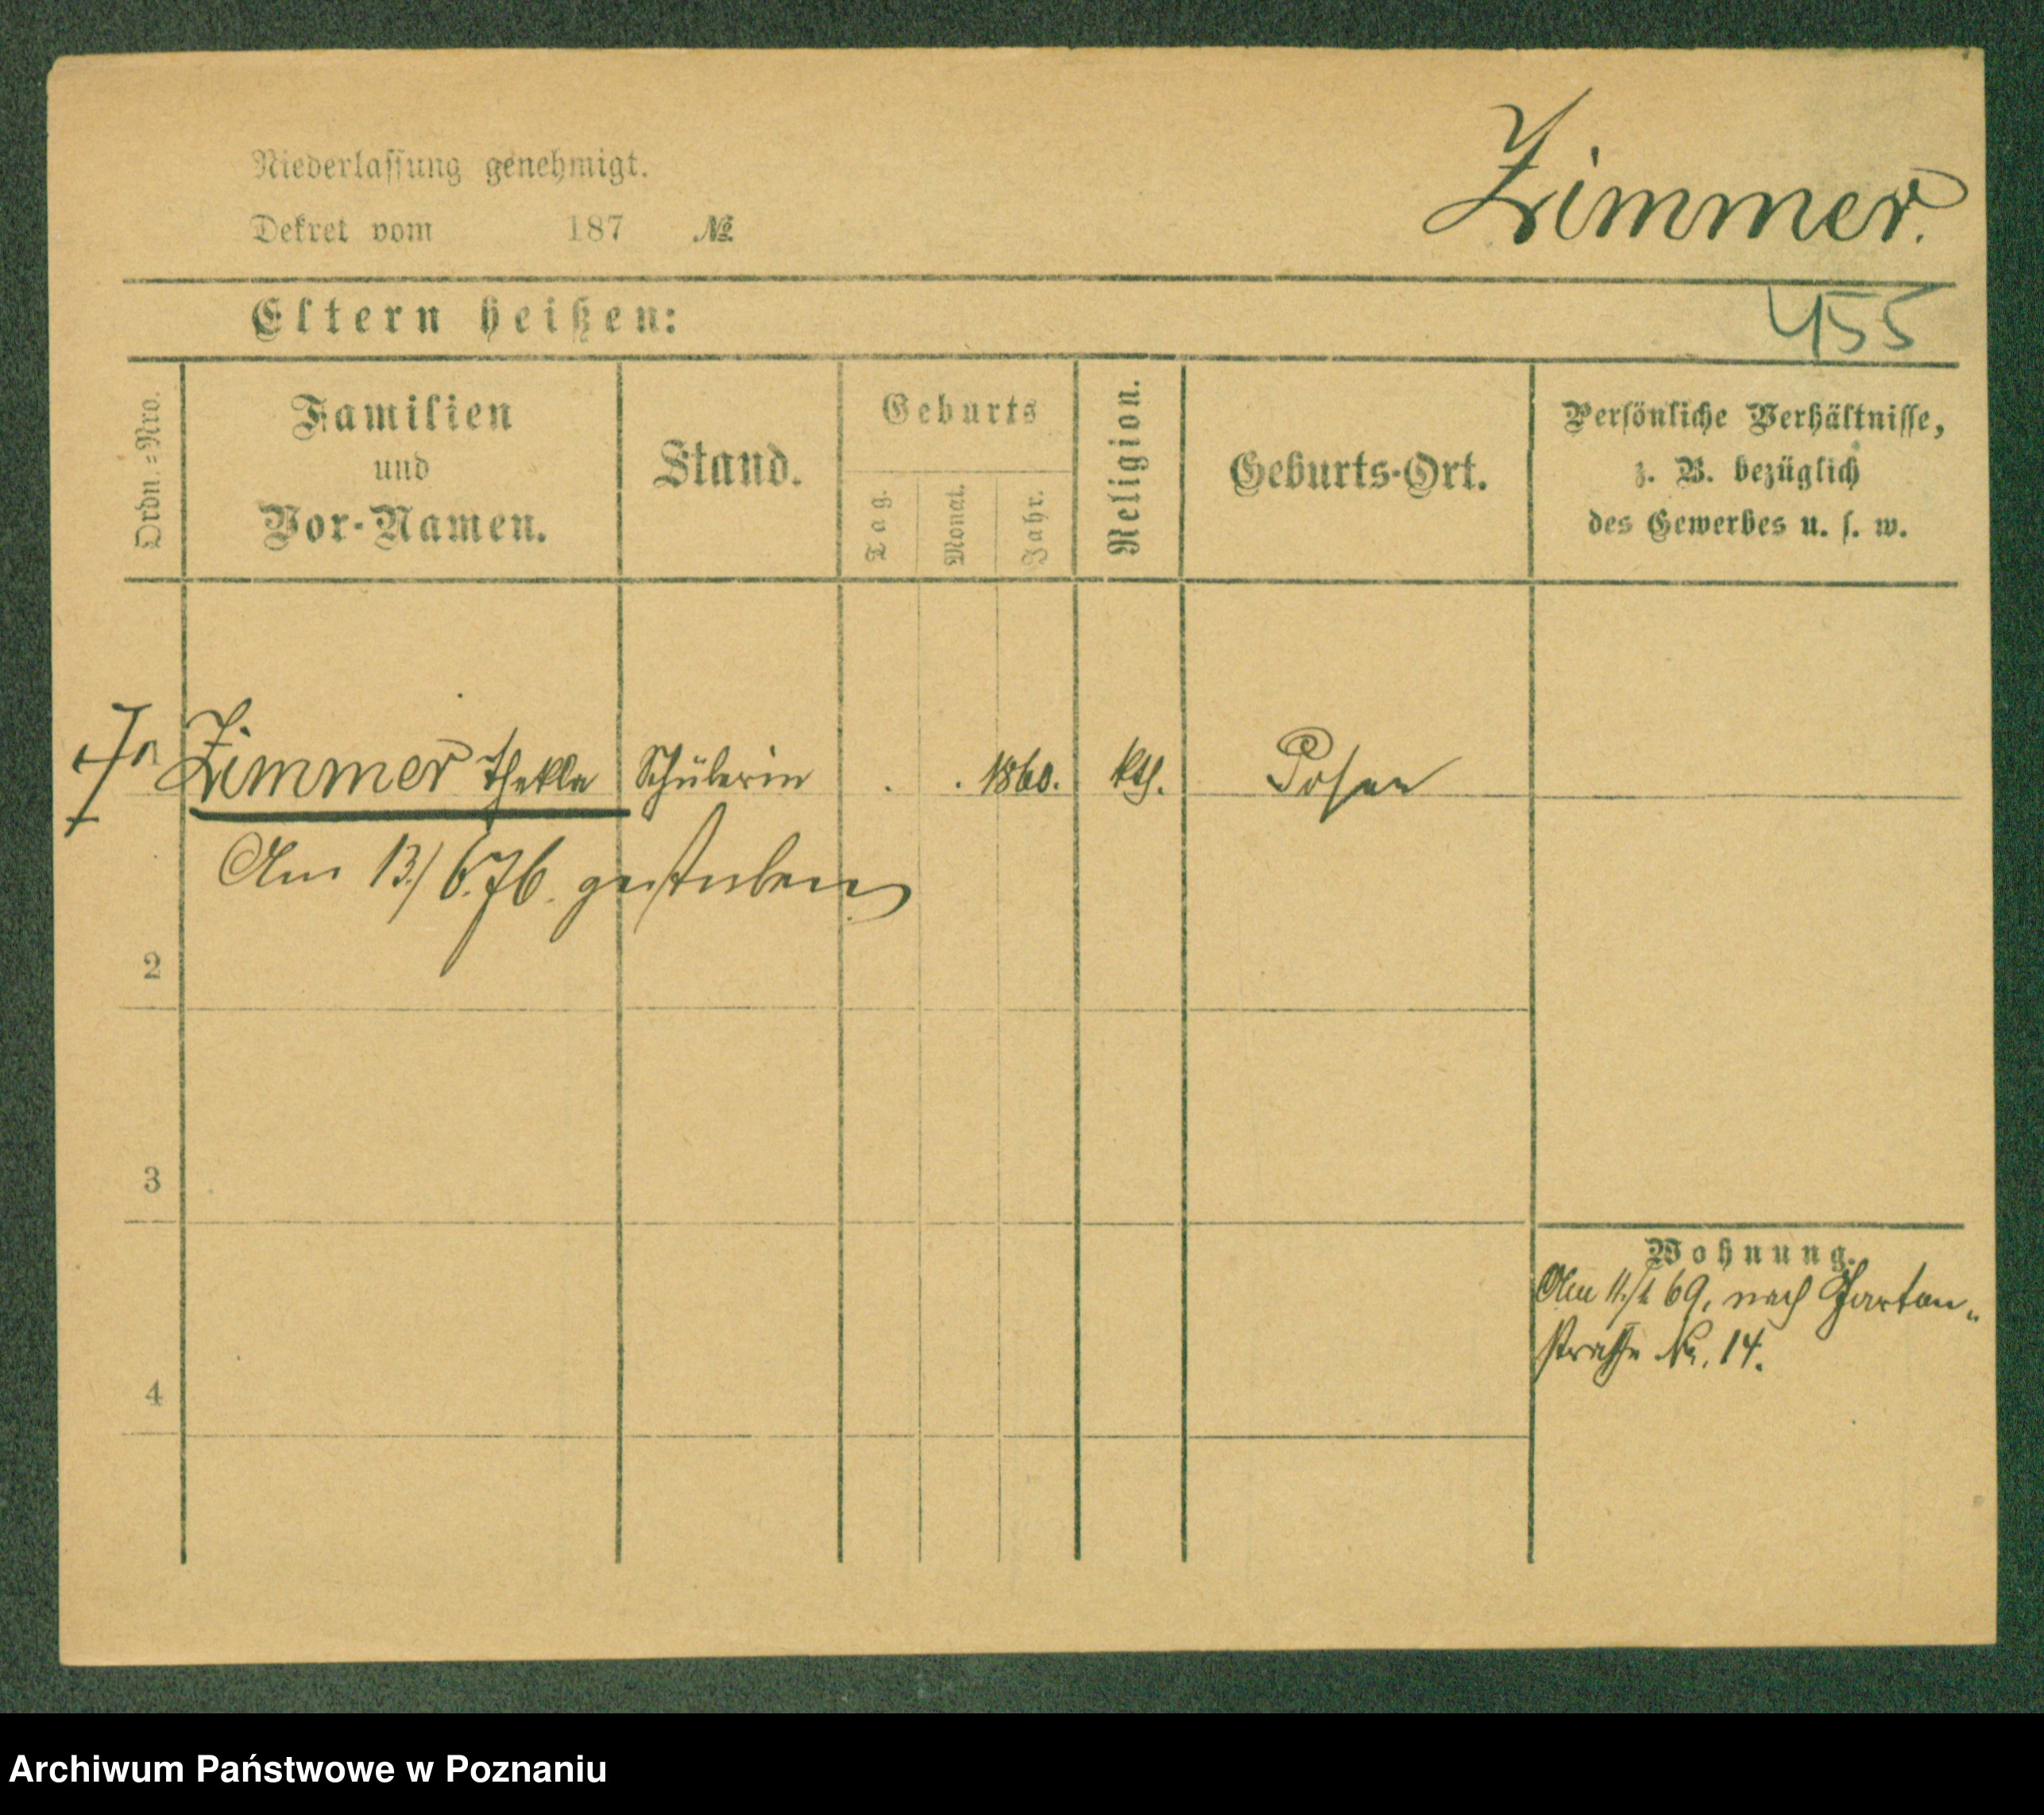 Zimmer.
Niederlassung genehmigt.
Dekret vom 187 №
Eltern heißen:
455
Ordn.=Nro.
Familien
und
Vor-Namen.
Stand.
Geburts
Tag.
Monat.
Jahr.
Religion.
Geburts-Ort.
Persönliche Verhältnisse,
z. B. bezüglich
des Gewerbes u. s. w.
Zimmer Thekla Schülerin . . 1860. kth. Posen
Am 13/6.76. gestorben
2
3
Wohnung.
Am 11/1 69. nach Garten-
straße No. 14.
4
Archiwum Państwowe w Poznaniu